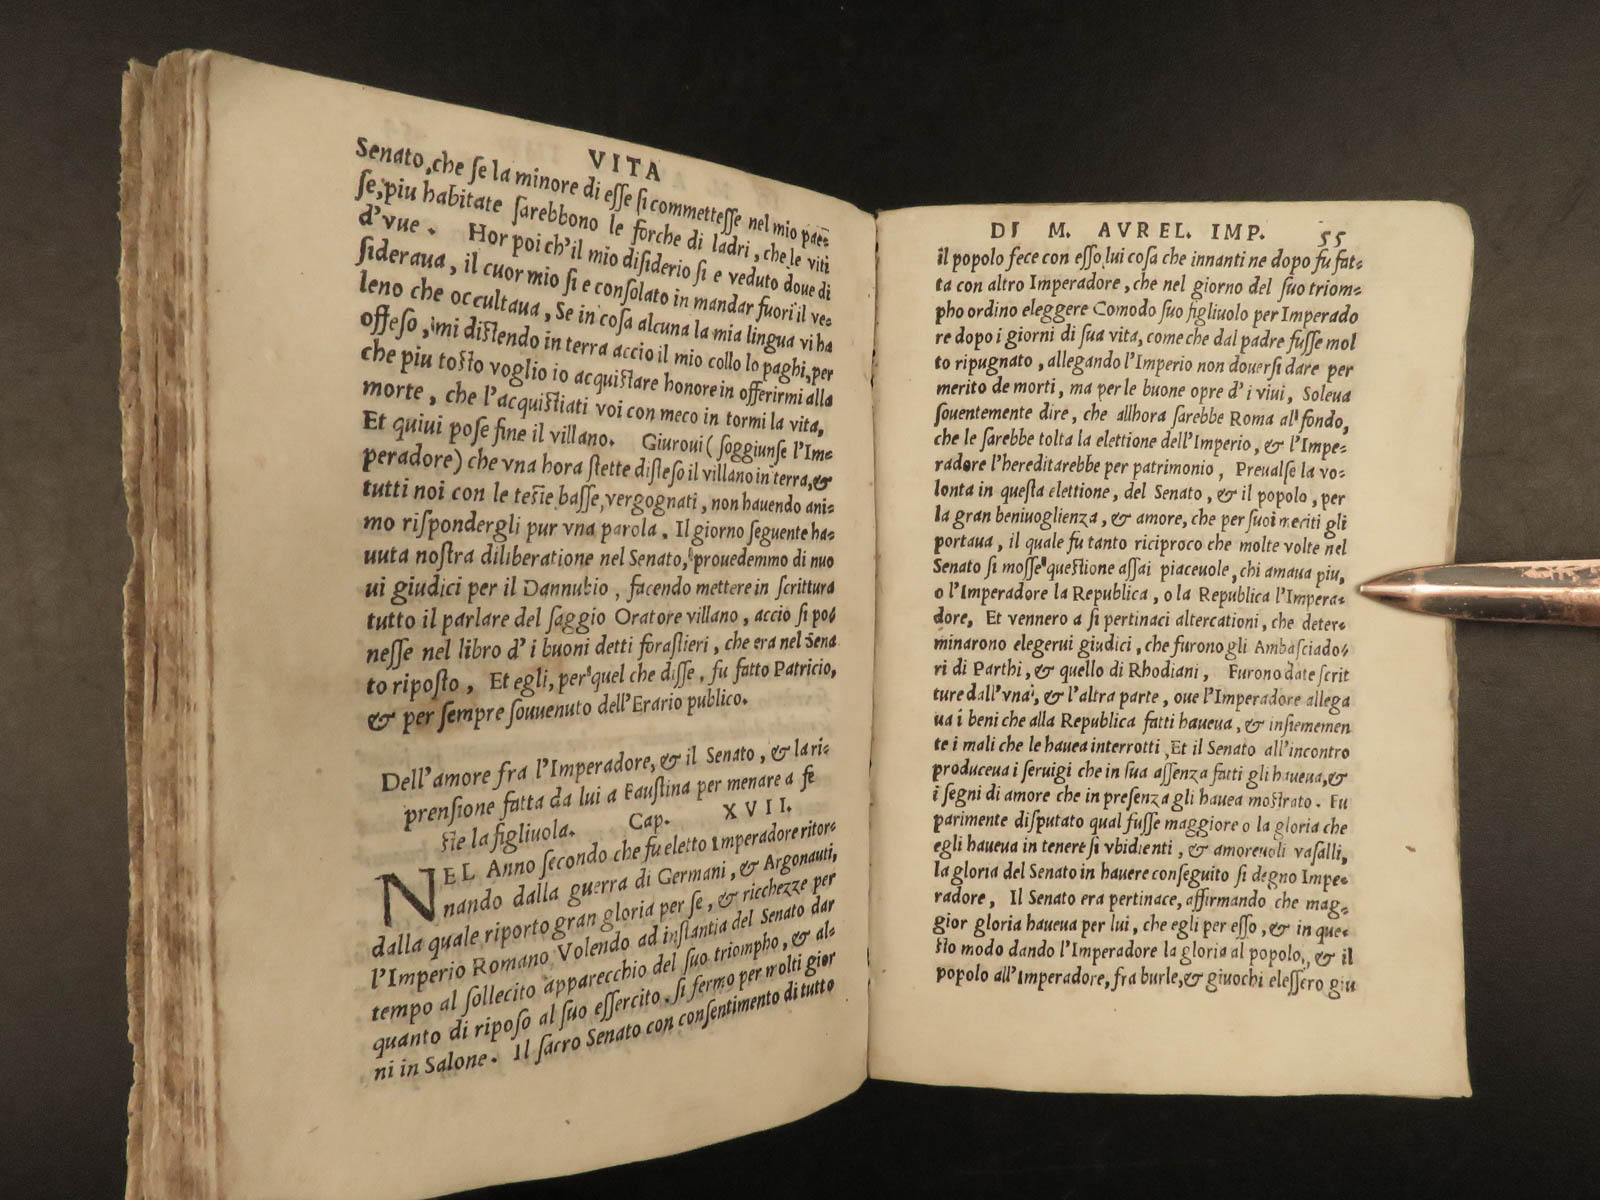 VITA
Senato, che ſe la minore di eſſe ſi commetteſſe nel mio pae=
ſe, piu habitate ſarebbono le forche di ladri, che le viti
d'vue. Hor poi ch'il mio diſiderio ſi e veduto doue di
ſideraua, il cuor mio ſi e conſolato in mandar fuori il ve=
leno che occultaua, Se in coſa alcuna la mia lingua vi ha
offeſo, mi diſtendo in terra accio il mio collo lo paghi, per
che piu toſto voglio io acquiſtare honore in offerirmi alla
morte, che l'acquiſtiati voi con meco in tormi la vita,
Et quiui poſe fine il villano. Giuroui ( ſoggiunſe l'Im=
peradore) che vna hora ſtette diſteſo il villano in terra, &
tutti noi con le teſte baſſe, vergognati, non hauendo ani=
mo riſpondergli pur vna parola. Il giorno ſeguente ha=
uuta noſtra diliberatione nel Senato, prouedemmo di nuo
ui giudici per il Dannubio, facendo mettere in ſcrittura
tutto il parlare del ſaggio Oratore villano, accio ſi po=
neſſe nel libro d'i buoni detti foraſtieri, che era nel Sena
to ripoſto, Et egli, per quel che diſſe, fu fatto Patricio,
& per ſempre ſouuenuto dell'Erario publico.
Dell'amore fra l'Imperadore, & il Senato, & la ri=
prenſione fatta da lui a Fauſtina per menare a fe
ſte la figliuola. Cap. XVII.
NEL Anno ſecondo che fu eletto Imperadore ritor=
nando dalla guerra di Germani, & Argonauti,
dalla quale riporto gran gloria per ſe, & ricchezze per
l'Imperio Romano Volendo ad inſtantia del Senato dar
tempo al ſollecito apparecchio del ſuo triompho, & al=
quanto di ripoſo al ſuo eſſercito, ſi fermo per molti gior
ni in Salone. Il ſacro Senato con conſentimento di tutto
DI M. AVREL. IMP. 55
il popolo fece con eſſo lui coſa che innanti ne dopo fu fat=
ta con altro Imperadore, che nel giorno del ſuo triom=
pho ordino eleggere Comodo ſuo figliuolo per Imperado
re dopo i giorni di ſua vita, come che dal padre fuſſe mol
to ripugnato, allegando l'Imperio non douerſi dare per
merito de morti, ma per le buone opre d'i viui, Soleua
ſouentemente dire, che allhora ſarebbe Roma al fondo,
che le ſarebbe tolta la elettione dell'Imperio, & l'Impe=
radore l'hereditarebbe per patrimonio, Preualſe la vo=
lonta in queſta elettione, del Senato, & il popolo, per
la gran beniuoglienza, & amore, che per ſuoi meriti gli
portaua, il quale fu tanto riciproco che molte volte nel
Senato ſi moſſe queſtione aſſai piaceuole, chi amaua piu,
o l'Imperadore la Republica, o la Republica l'Impera=
dore, Et vennero a ſi pertinaci altercationi, che deter=
minarono elegerui giudici, che furono gli Ambaſciado=
ri di Parthi, & quello di Rhodiani, Furono date ſcrit
ture dall'vna, & l'altra parte, oue l'Imperadore allega
ua i beni che alla Republica fatti haueua, & inſiememen
te i mali che le hauea interrotti, Et il Senato all'incontro
produceua i ſeruigi che in ſua aſſenza fatti gli haueua, &
i ſegni di amore che in preſenza gli hauea moſtrato. Fu
parimente diſputato qual fuſſe maggiore o la gloria che
egli haueua in tenere ſi vbidienti, & amoreuoli vaſalli,
la gloria del Senato in hauere conſeguito ſi degno Impe=
radore, Il Senato era pertinace, affirmando che mag=
gior gloria haueua per lui, che egli per eſſo, & in que=
ſto modo dando l'Imperadore la gloria al popolo, & il
popolo all'Imperadore, fra burle, & giuochi eleſſero giu